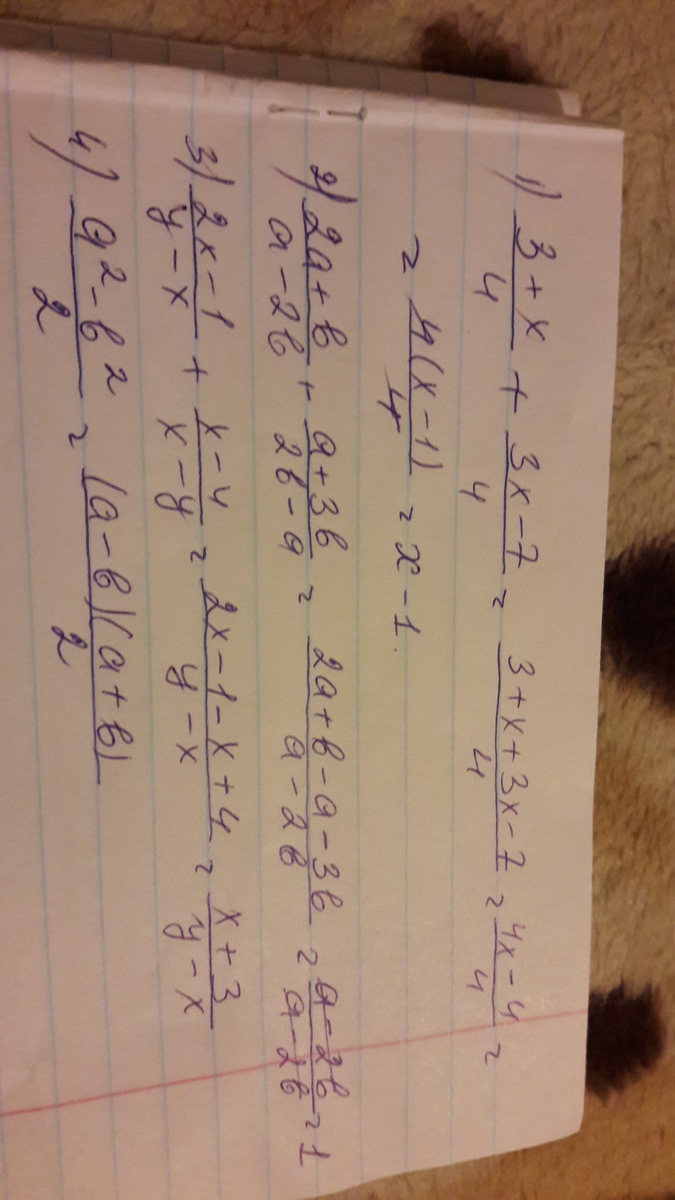 1) (3+x)/4 + (3x-7)/4 = (3+x+3x-7)/4 = (4x-4)/4 =
= 4(x-1)/4 = x-1.
2) (2a+b)/(a-2b) + (a+3b)/(2b-a) = (2a+b-a-3b)/(a-2b) = (a-2b)/(a-2b) = 1
3) (2x-1)/(y-x) + (x-4)/(x-y) = (2x-1-x+4)/(y-x) = (x+3)/(y-x)
4) (a²-b²)/2 = (a-b)(a+b)/2